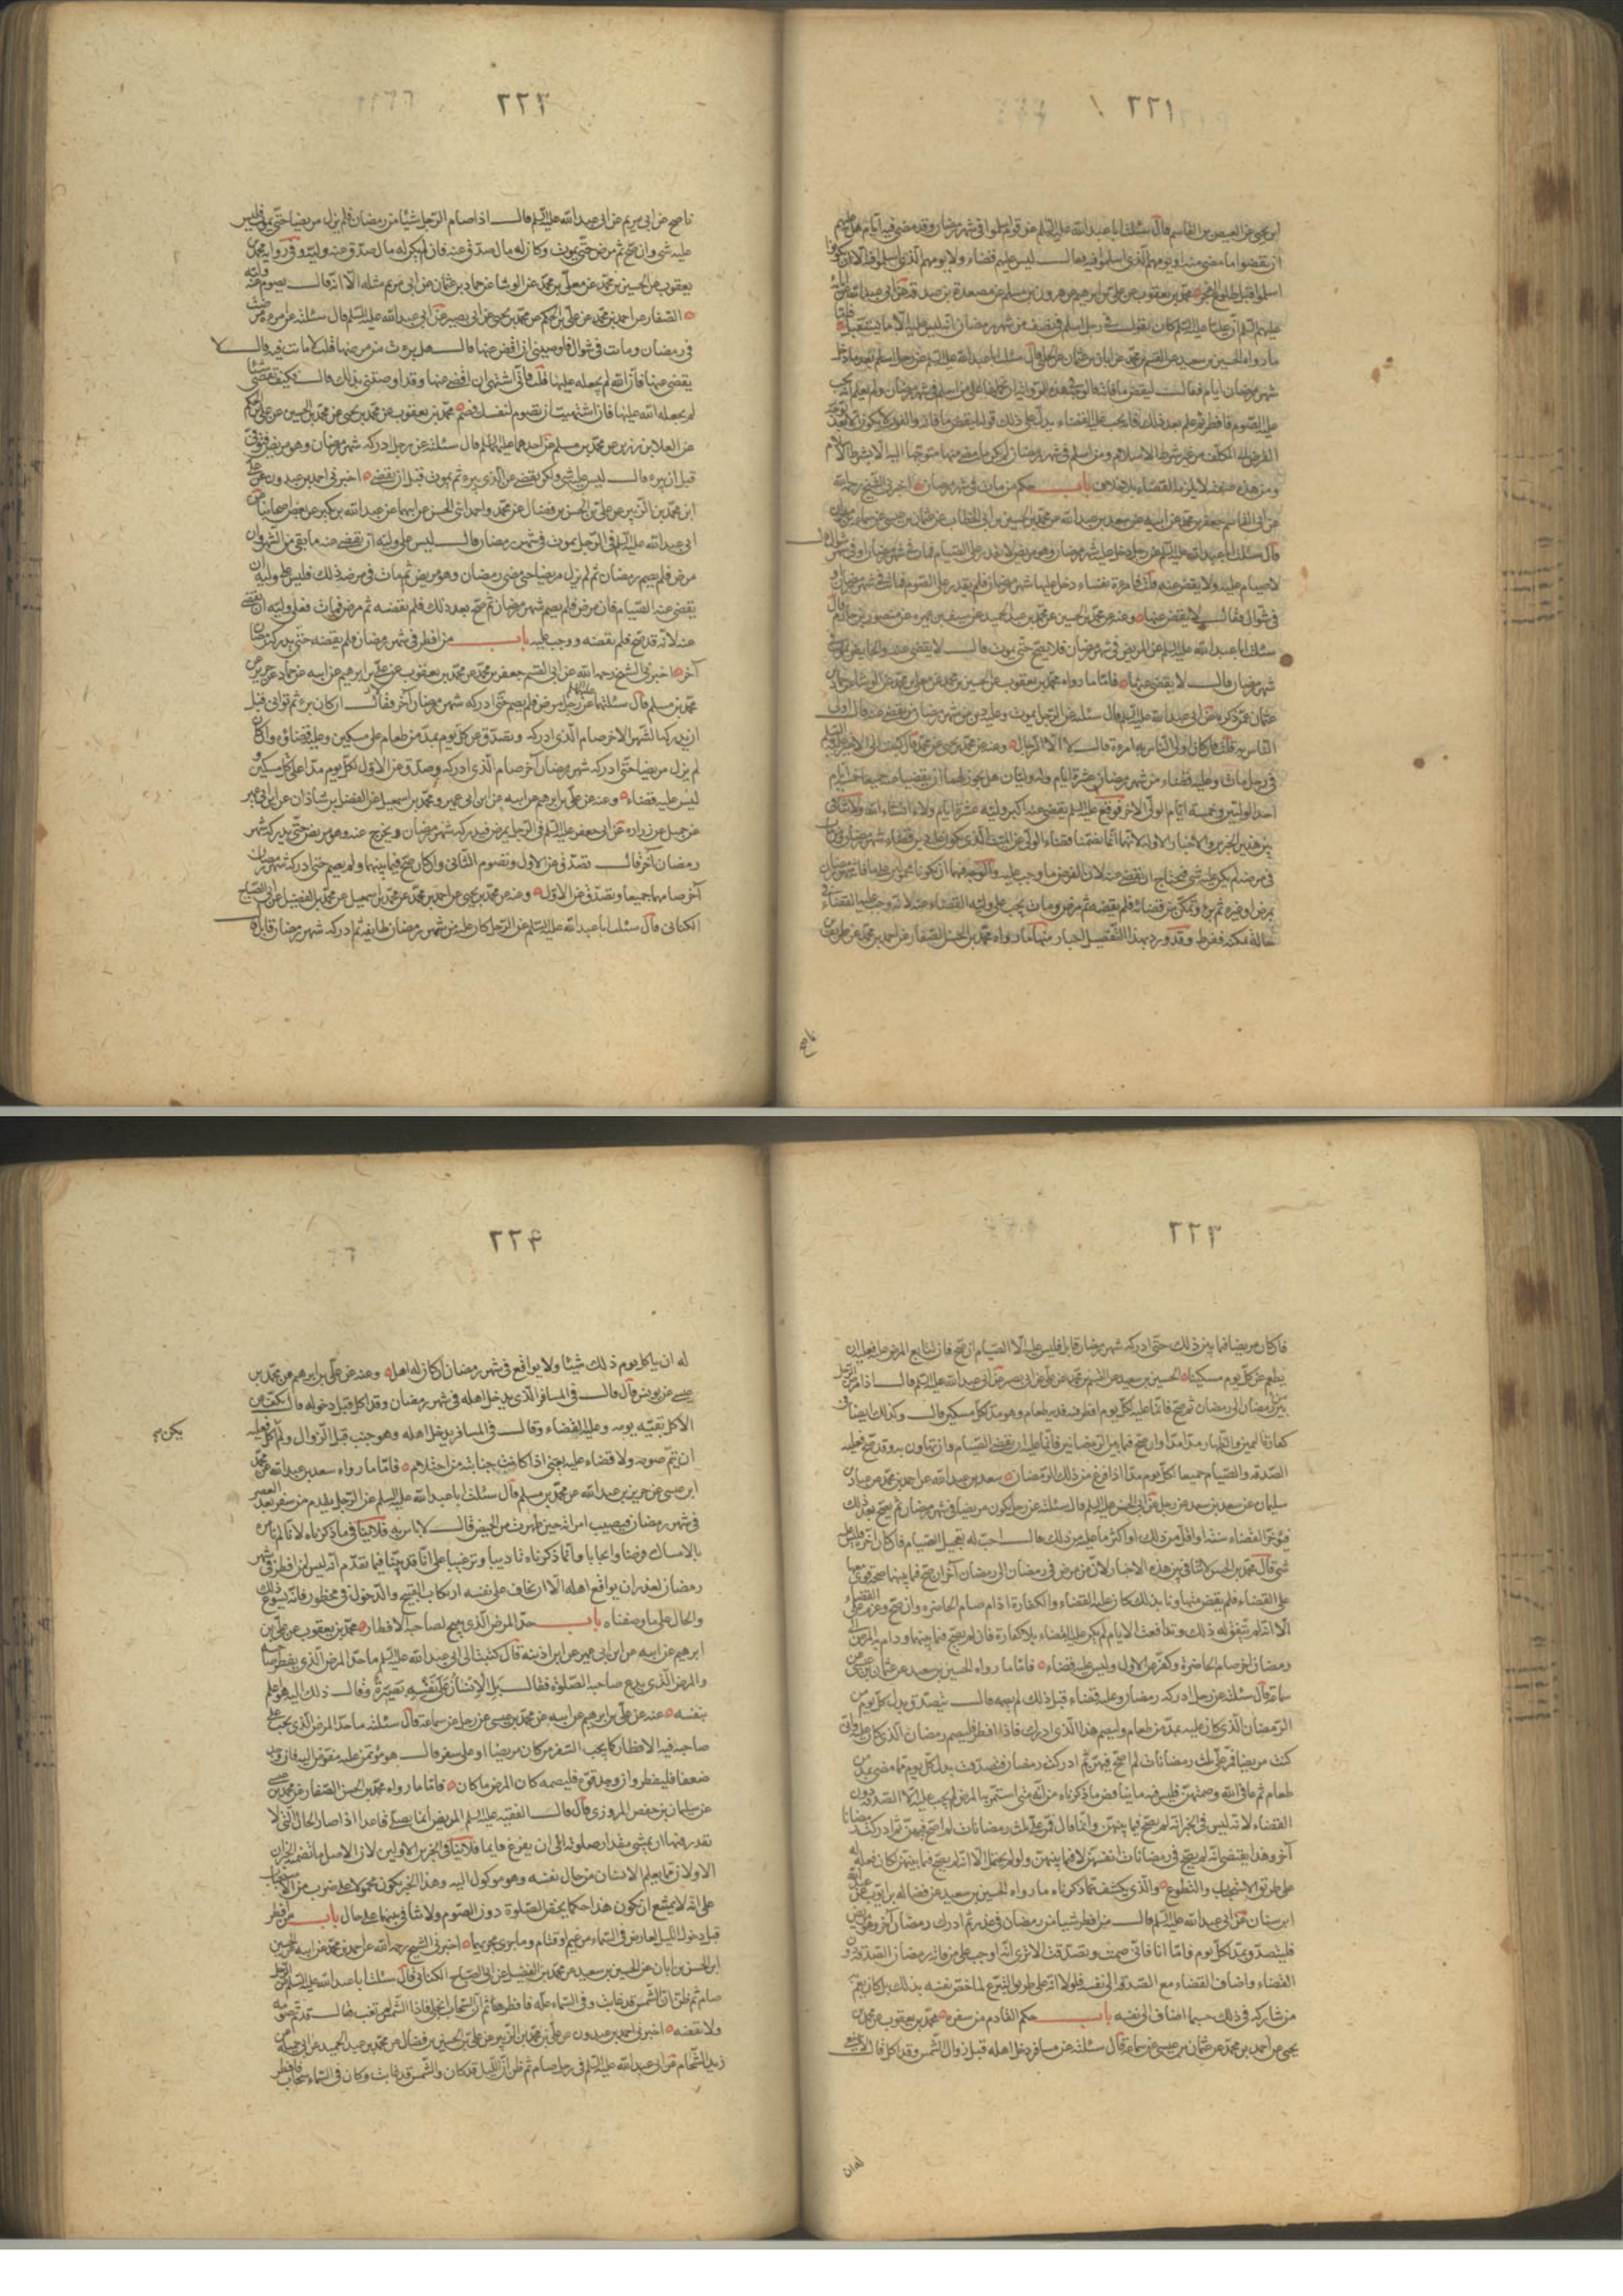 ٢٢١
ابن يحيى عن العيص بن القاسم قال سئلت ابا عبد الله عليه السلم عن قوم اسلموا فى شهر رمضان وقد مضى فيه ايام هل عليهم
ان يقضوا ما مضى منه او يومهم الذى اسلموا فيه قال ليس عليهم قضاء ولا يومهم الذى اسلموا فيه الا ان يكونوا
اسلموا قبل طلوع الفجر محمد بن يعقوب عن على بن ابرهيم عن هرون بن مسلم عن مسعدة بن صدقة عن ابى عبد الله عن ابائه
عليهم السلم ان عليا عليه السلم كان يقول فى رجل اسلم فى نصف شهر رمضان انه ليس عليه الا ما يستقبل فاما
ما رواه الحسين بن سعيد عن القسم بن محمد عن ابان بن عثمان عن الحلبى قال سئلت ابا عبد الله عليه السلم عن رجل اسلم بعد ما دخل
شهر رمضان ايام فقال ليقض ما فاته فالوجه فى هذه الرواية
عليه الصوم فافطر ثم علم بعد ذلك فانه يجب عليه القضاء يدل على ذلك قوله ليقض ما فاته والفوت لا يكون الا بعد توجه
الفرض الى المكلف ومن شرط الاسلام ومن اسلم فى شهر رمضان لم يكن ما مضى منه متوجها اليه الا بشرط الاسلام
ومن هذه صفته لا يلزمه القضاء بلا خلاف باب حكم من مات فى شهر رمضان اخبرنى الشيخ رحمه الله
عن ابى القاسم جعفر بن محمد عن ابيه عن سعد بن عبد الله عن محمد بن الحسين بن ابى الخطاب عن عثمان بن عيسى عن سماعة بن مهران
قال سئلت ابا عبد الله عليه السلم عن رجل دخل عليه شهر رمضان وهو مريض لا يقدر على الصيام فمات فى شهر رمضان او فى شهر شوال قال
لا صيام عليه ولا يقضى عنه قلت فامرأة نفساء دخل عليها شهر رمضان فلم تقدر على الصوم فماتت فى شهر رمضان او
فى شوال فقال لا يقضى عنها وعنه عن محمد بن الحسين عن محمد بن عبد الحميد عن سيف بن عميرة عن منصور بن حازم قال
سئلت ابا عبد الله عليه السلم عن المريض فى شهر رمضان فلا يصح حتى يموت قال لا يقضى عنه والحايض تموت فى
شهر رمضان قال لا يقضى عنها فاما ما رواه محمد بن يعقوب عن الحسين بن محمد عن معلى بن محمد عن الوشا عن حماد بن
عثمان عمن ذكره عن ابى عبد الله عليه السلم قال سئلته عن الرجل يموت وعليه دين من شهر رمضان من يقضى عنه قال اولى
الناس به قلت فان كان اولى الناس به امرأة قال لا الا الرجال وعنه عن محمد بن يحيى عن محمد قال كتبت الى الاخير عليه السلم
فى رجل مات وعليه قضاء من شهر رمضان عشرة ايام وله وليان هل يجوز لهما ان يقضيا عنه جميعا خمسة ايام
احد الوليين وخمسة ايام الولى الاخر فوقع عليه السلم يقضى عنه اكبر وليه عشرة ايام ولاء ان شاء الله ولا تنافى
بين هذين الخبرين والاخبار الاولة لانهما انما تضمنا قضاء الولى عن الميت الذى يكون عليه دين قضاء شهر رمضان ومن مات
فى مرضه لم يكن عليه شى فيحتاج ان يقضى عنه لان الفرض ما وجب عليه والوجه فيهما ان يكونا
بمرض او غيره ثم برئ وتمكن من قضائه فلم يقضه ثم مرض ومات يجب على وليه القضاء عنه لانه وجب عليه القضاء فى
حالة تمكنه ففرط وقد ورد بهذا التفصيل اخبار منها ما رواه محمد بن الحسن الصفار عن احمد بن محمد عن على بن
ناصح
٢٢٢
ناصح عن ابى مريم عن ابى عبد الله عليه السلم قال اذا صام الرجل شيئا من رمضان فلم يزل مريضا حتى يموت فليس
عليه شى وان صح ثم مرض حتى يموت وكان له مال تصدق عنه فان لم يكن له مال تصدق عنه وليه وفى رواية محمد بن
يعقوب عن الحسين بن محمد عن معلى بن محمد عن الوشا عن حماد بن عثمان عن ابى مريم مثله الا انه قال يصوم عنه وليه
الصفار عن احمد بن محمد عن على بن الحكم عن محمد بن يحيى عن ابى بصير عن ابى عبد الله عليه السلم قال سئلته عن امرءة مرضت
فى رمضان وماتت فى شوال فاوصتنى ان اقضى عنها قال هل برئت من مرضها قلت لا ماتت فيه قال لا
يقضى عنها فان الله لم يجعله عليها قلت فانى اشتهى ان اقضى عنها وقد اوصتنى بذلك قال فكيف تقضى شيئا
لم يجعله الله عليها فان اشتهيت ان تصوم لنفسك فصم محمد بن يعقوب عن محمد بن يحيى عن محمد بن الحسين عن على بن الحكم
عن العلا بن رزين عن محمد بن مسلم عن احدهما عليهما السلم قال سئلته عن رجل ادركه شهر رمضان وهو مريض فتوفى
قبل ان يبرء قال ليس عليه شى ولكن يقضى عن الذى يبرء ثم يموت قبل ان يقضى اخبرنى احمد بن عبدون عن على
ابن محمد بن الزبير عن على بن الحسن بن فضال عن محمد واحمد ابنى الحسن عن ابيهما عن عبد الله بن بكير عن بعض اصحابنا عن
ابى عبد الله عليه السلم فى الرجل يموت فى شهر رمضان قال ليس على وليه ان يقضى عنه ما بقى من الشهر وان
مرض فلم يصم رمضان ثم لم يزل مريضا حتى مضى رمضان وهو مريض ثم مات فى مرضه ذلك فليس على وليه ان
يقضى عنه الصيام فان مرض فلم يصم شهر رمضان ثم صح بعد ذلك فلم يقضه ثم مرض فمات فعلى وليه ان يقضى
عنه لانه قد صح فلم يقضه ووجب عليه باب من افطر فى شهر رمضان فلم يقضه حتى يدركه رمضان
آخر اخبرنى الشيخ رحمه الله عن ابى القسم جعفر بن محمد عن محمد بن يعقوب عن على بن ابرهيم عن ابيه عن حماد عن حريز عن
محمد بن مسلم قال سئلتهما عليهما السلم عن رجل مرض فلم يصم حتى ادركه شهر رمضان آخر فقالا ان كان برء ثم توانى قبل
ان يدركه الشهر الاخر صام الذى ادركه وتصدق عن كل يوم بمد من طعام على مسكين وعليه قضاؤه وان كان
لم يزل مريضا حتى ادركه شهر رمضان آخر صام الذى ادركه وتصدق عن الاول لكل يوم مدا على كل مسكين
ليس عليه قضاء وعنه عن على بن ابرهيم عن ابيه عن ابن ابى عمير ومحمد بن اسمعيل عن الفضل بن شاذان عن ابن ابى عمير
عن جميل عن زراره عن ابى جعفر عليه السلم فى الرجل يمرض فيدركه شهر رمضان ويخرج عنه وهو مريض حتى يدركه شهر
رمضان آخر قال تصدق عن الاول وتصوم الثانى وان كان صح فيما بينهما ولم يصم حتى ادركه شهر رمضان
آخر صامهما جميعا وتصدق عن الاول وعنه عن محمد بن يحيى عن احمد بن محمد عن محمد بن اسمعيل عن محمد بن الفضيل عن ابى الصباح
الكنانى قال سئلت ابا عبد الله عليه السلم عن الرجل كان عليه من شهر رمضان طايفة ثم ادركه شهر رمضان قابل قال
٢٢٣
فان كان مريضا فيما بين ذلك حتى ادركه شهر رمضان قابل فليس عليه الا الصيام ان صح فان تتابع المرض عليه فعليه ان
يطعم عن كل يوم مسكينا الحسين بن سعيد عن القسم بن محمد عن على عن ابى بصير عن ابى عبد الله عليه السلم قال اذا مرض الرجل
بين رمضان الى رمضان ثم صح فانما عليه لكل يوم افطر فدية طعام وهو مد لكل مسكين قال وكذلك ايضا فى
كفارة اليمين والظهار مدا مدا وان صح فيما بين الرمضانين فانما عليه ان يقضى الصيام وان تهاون به وقد صح فعليه
الصدقة والصيام جميعا لكل يوم مدا اذا فرغ من ذلك الرمضان سعد بن عبد الله عن احمد بن محمد عن عباد بن
سليمان عن سعد بن سعد عن رجل عن ابى الحسن عليه السلم قال سئلته عن رجل يكون مريضا فى شهر رمضان ثم يصح بعد ذلك
فيؤخر القضاء سنة او اقل من ذلك او اكثر ما عليه من ذلك قال احب له تعجيل الصيام فان كان اخره فليس عليه
شى قال محمد بن الحسن لا تنافى بين هذه الاخبار لان من مرض فى رمضان الى رمضان آخر ان صح فيما بينهما صحة يقوى معها
على القضاء فلم يقض متهاونا بذلك كان عليه القضاء والكفارة اذا صام الحاضر وان صح وعزم على القضاء
الا انه لم يتفق له ذلك وتدافعت الايام لم يكن عليه القضاء بلا كفارة فان لم يصح فيما بينهما ودام به المرض الى
رمضان اخر صام الحاضر وكفر عن الاول وليس عليه قضاء فاما ما رواه الحسين بن سعيد عن عثمان بن عيسى عن
سماعة قال سئلته عن رجل ادركه رمضان وعليه قضاء قبل ذلك لم يصمه قال يتصدق بدل كل يوم من
الرمضان الذى كان عليه بمد من طعام وليصم هذا الذى ادرك فاذا افطر فليصم رمضان الذى كان عليه فانى
كنت مريضا فمر على ثلث رمضانات لم اصح فيهن ثم ادركت رمضان فتصدقت بدل كل يوم مما مضى بمد من
طعام ثم عافانى الله وصمتهن فليس فيه ما ينافى ما ذكرناه من انه متى استمر به المرض لم يجب عليه الا الصدقة دون
القضاء لانه ليس فى الخبر انه لم يصح فيما بينهن وانما قال فمر على ثلث رمضانات لم اصح فيهن ثم ادركت رمضانا
آخر وهذا يقتضى انه لم يصح فى رمضانات انفسهن لا فيما بينهن ولو لم يحتمل الا انه لم يصح فيما بينهن لكان فعله
على طريق الاستحباب والتطوع والذى يكشف عما ذكرناه ما رواه الحسين بن سعيد عن فضالة بن ايوب عن عبد الله
ابن سنان عن ابى عبد الله عليه السلم قال من افطر شيئا من رمضان فى عذر ثم ادرك رمضان آخر وهو مريض
فليتصدق بمد لكل يوم فاما انا فانى صمت وتصدقت الا ترى انه اوجب على من فاته رمضان الصدقة دون
القضاء واضاف القضاء مع الصدقة الى نفسه فلولا انه على طريق التبرع لما خص نفسه بذلك بل كان يعم
من شاركه فى ذلك حسبما اضاف الى نفسه باب حكم القادم من سفره محمد بن يعقوب عن محمد بن
يحيى عن احمد بن محمد عن عثمان بن عيسى عن سماعة قال سئلته عن مسافر دخل اهله قبل زوال الشمس وقد اكل قال لا ينبغى
له ان
٢٢٤
له ان ياكل يوم ذلك شيئا ولا يواقع فى شهر رمضان ان كان له اهل وعنه عن على بن ابرهيم عن محمد بن
عيسى عن يونس قال قال فى المسافر الذى يدخل اهله فى شهر رمضان وقد اكل قبل دخوله قال يكف عن
الاكل بقية يومه وعليه القضاء وقال فى المسافر يدخل اهله وهو جنب قبل الزوال ولم يكن اكل فعليه
ان يتم صومه ولا قضاء عليه يعنى اذا كانت جنابته من احتلام فاما ما رواه سعد بن عبد الله عن محمد
ابن عيسى عن حريز بن عبد الله عن محمد بن مسلم قال سئلت ابا عبد الله عليه السلم عن الرجل يقدم من سفر بعد العصر
فى شهر رمضان فيصيب امرأته حين طهرت من الحيض قال لا باس به فلا ينافى ما ذكرناه لانا انما نامره
بالامساك تاديبا وترغيبا على انا قد بينا فيما تقدم انه ليس لمن افطر فى شهر
رمضان لعذر ان يواقع اهله الا ان يخاف على نفسه ارتكاب القبيح والدخول فى محظور فانه يسوغ ذلك
والحال على ما وصفناه باب حد المرض الذى يبيح لصاحبه الافطار محمد بن يعقوب عن على بن
ابرهيم عن ابيه عن ابن ابى عمير عن ابن اذينة قال كتبت الى ابى عبد الله عليه السلم ما حد المرض الذى يفطر صاحبه
والمرض الذى يدع صاحبه الصلوة فقال بل الانسان على نفسه بصيرة وقال ذلك اليه هو اعلم
بنفسه عنه عن على بن ابرهيم عن ابيه عن محمد بن عيسى عن رجل عن سماعة قال سئلته ما حد المرض الذى يجب على
صاحبه فيه الافطار كما يجب السفر من كان مريضا او على سفر قال هو مؤتمن عليه مفوض اليه فان وجد
ضعفا فليفطر وان وجد قوة فليصمه كان المرض ما كان فاما ما رواه محمد بن الحسن الصفار عن محمد بن عيسى
عن سليمان بن حفص المروزى قال قال الفقيه عليه السلم المريض انما يصلى قاعدا اذا صار الحال التى لا
تقدر فيها ان يمشى مقدار صلوته الى ان يفرغ قايما فلا ينافى الخبرين الاولين لان الاصل ما تضمنه الخبران
الاولان مما يعلم الانسان من حال نفسه وهو موكول اليه وهذا الخبر يكون محمولا على ضرب من الاستحباب
على انه لا يمتنع ان يكون هذا حكما يختص الصلوة دون الصوم ولا تنافى بينهما على حال باب من افطر
قبل دخول الليل لعارض فى السماء من غيم او قتام وما جرى مجريهما اخبرنى الشيخ رحمه الله عن احمد بن محمد عن ابيه عن الحسين
ابن الحسن بن ابان عن الحسين بن سعيد عن محمد بن الفضيل عن ابى الصباح الكنانى قال سئلت ابا عبد الله عليه السلم عن رجل
صام ثم ظن ان الشمس قد غابت وفى السماء علة فافطر ثم ان السحاب انجلى فاذا الشمس لم تغب فقال قد تم صومه
ولا يقضه اخبرنى احمد بن عبدون عن على بن محمد بن الزبير عن على بن الحسين بن فضال عن محمد بن عبد الحميد عن ابى جميلة عن
زيد الشحام عن ابى عبد الله عليه السلم فى رجل صام ثم ظن ان الليل قد كان والشمس قد غابت وكان فى السماء سحاب فافطر
يكن